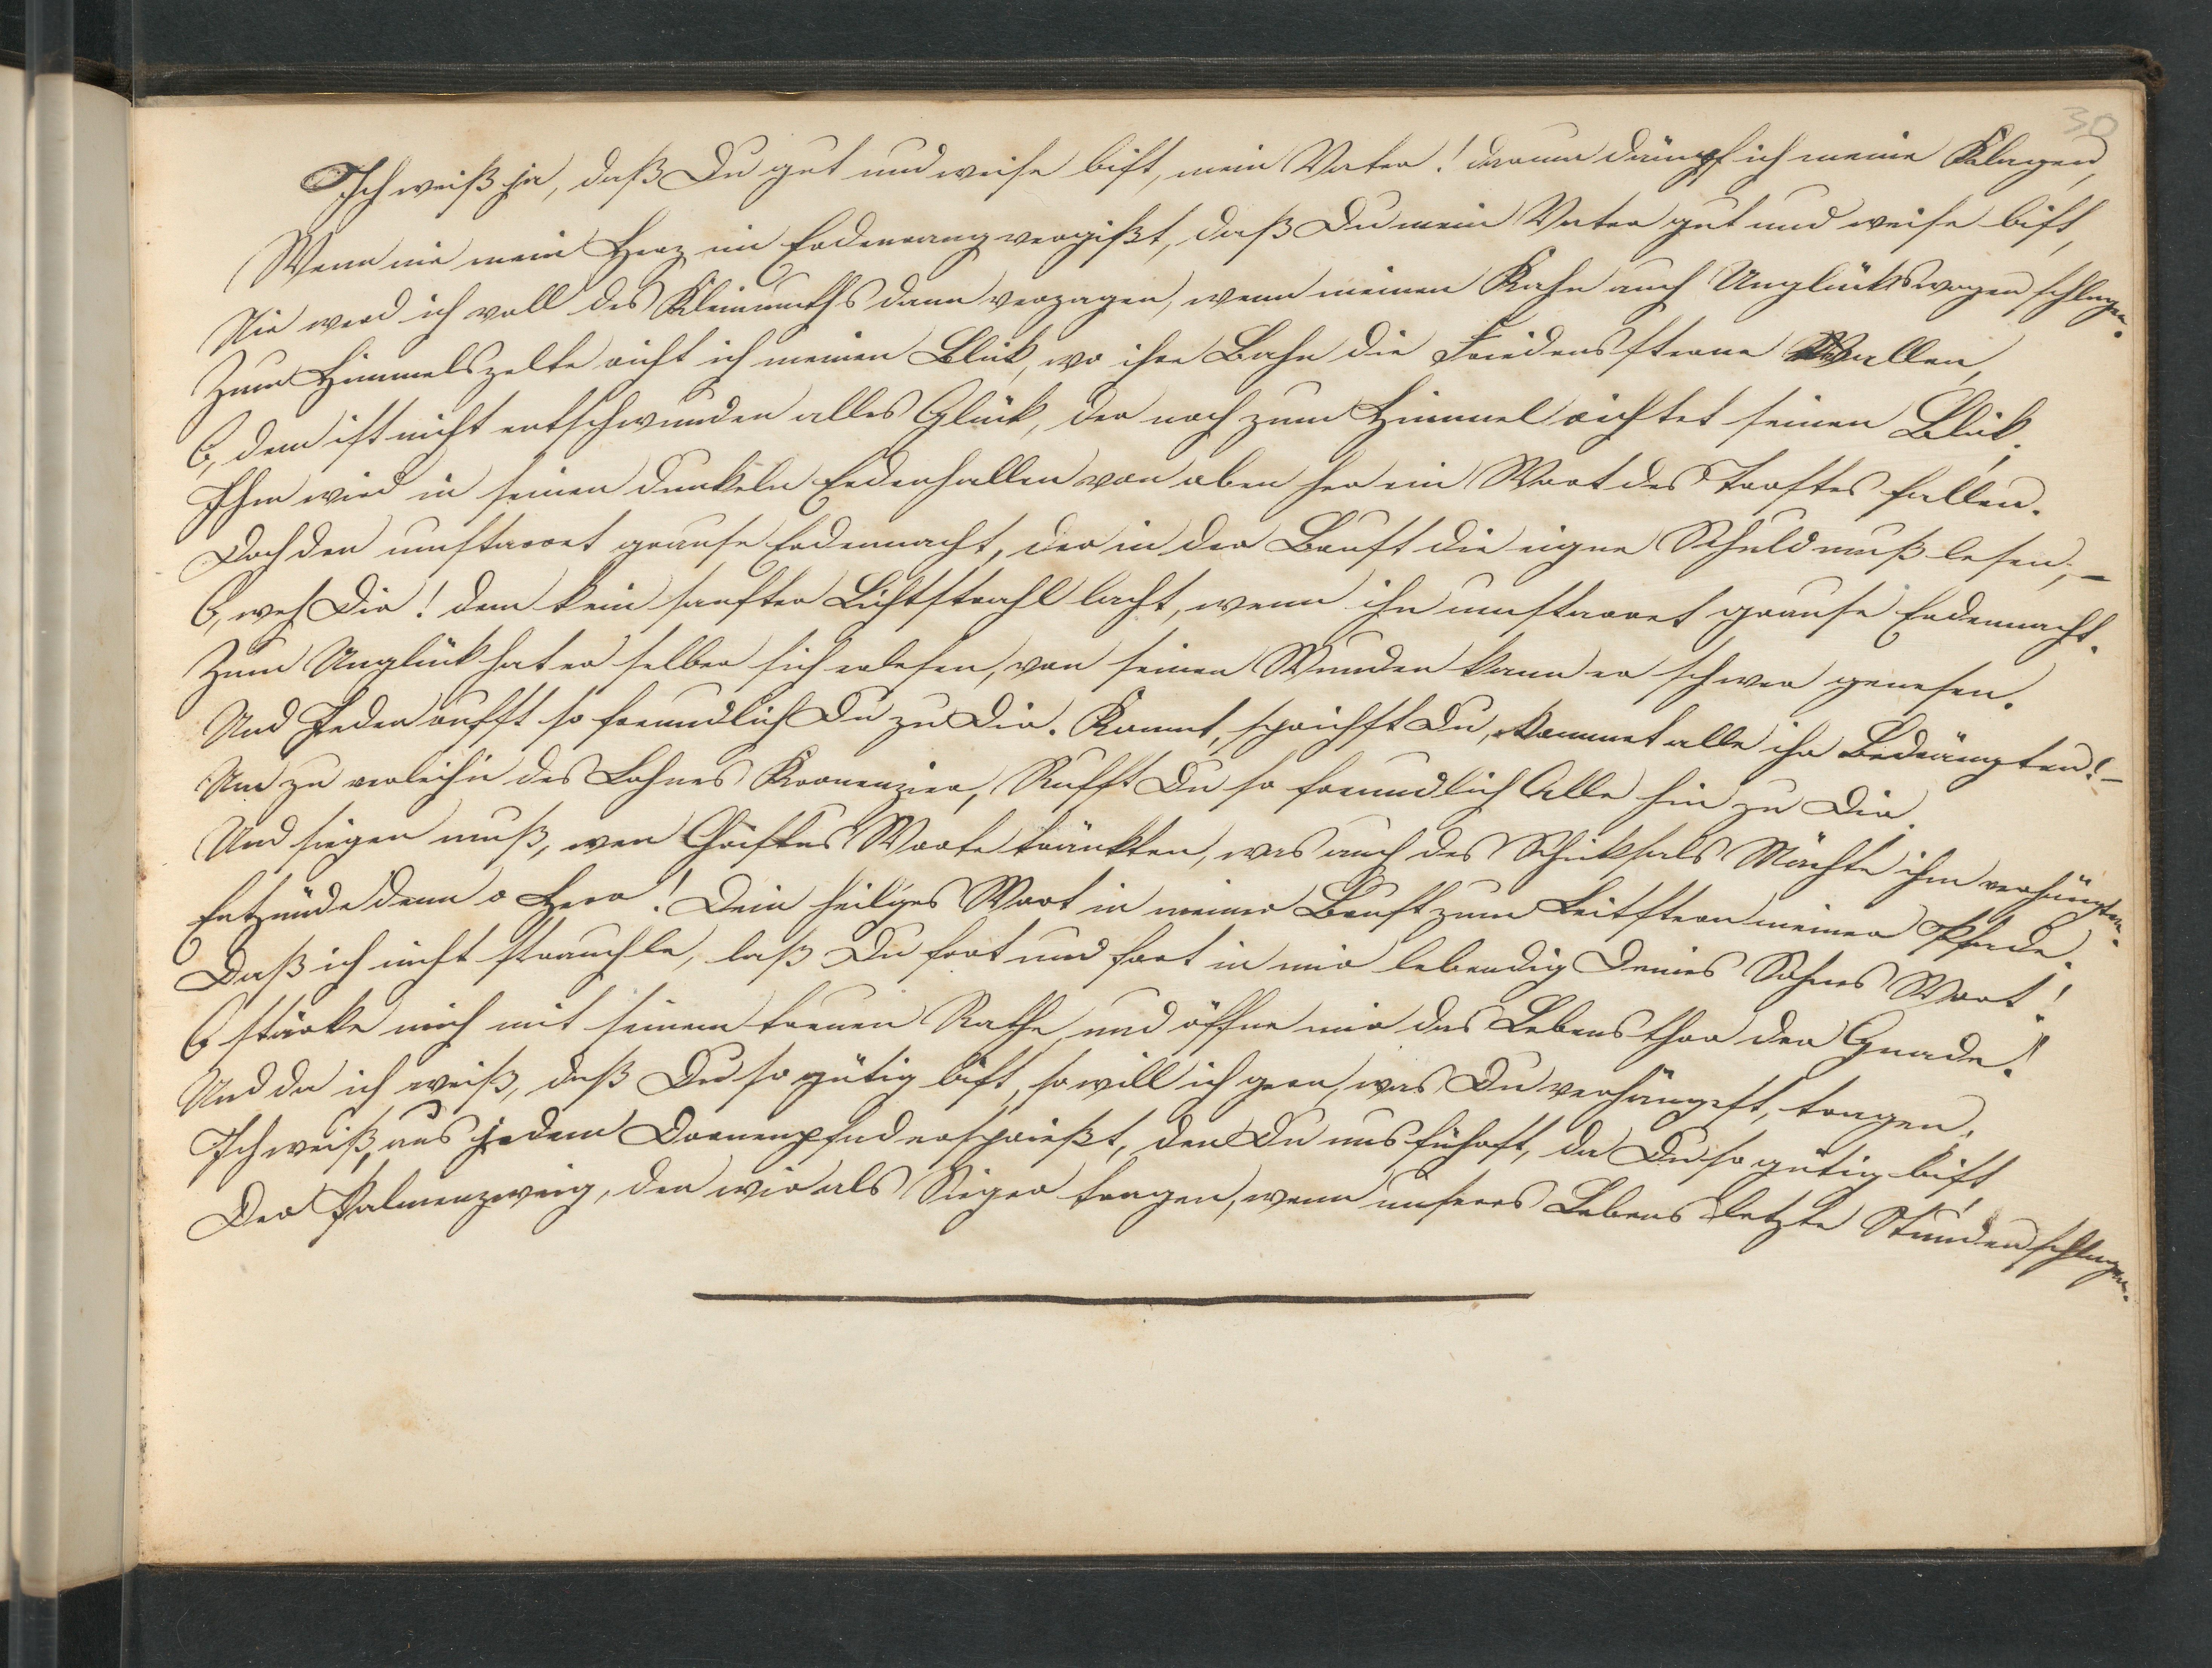 30
Ich weiß ja, daß Du gut und weise bist, mein Vater! darum dämpf ich meine Klagen,
Wenn nie mein Herz im Erdendrang vergißt, daß Du mein Vater gut und weise bist,
Nie werd ich voll des Kleinmuths dann verzagen, wenn meinen Kahn auch Unglückswogen schlagen.
Zum Himmelszelte richt ich meinen Blick, wo ihre Bahn die Friedenssterne Wallen,
O, dem ist nicht entschwunden alles Glück, der noch zum Himmel richtet seinen Blick.
Ihm wird in seinen dunkeln Erdenhallen von oben her ein Wort des Trostes fallen.
Doch den umstarret grause Erdennacht, der in der Brust die eigne Schuld muß lesen, –
O, weh Dir! dem kein sanfter Lichtstrahl lacht, wenn ihn umstarret grause Erdennacht.
Zum Unglück hat er selber sich erlesen, von seinen Wunden kann er schwer genesen.
Und Jeden rufst so freundlich Du zu Dir. Kommt, sprichst Du, kommet alle ihr Bedrängten! –
Um zu verleih'n des Lohnes Kronenzier, Rufst Du so freundlich Alle hin zu Dir.
Und siegen muß, wen Christus Worte tränkten, was auch des Schicksals Mächte ihm verhängten.
Entzünde denn o Herr! Dein heil'ges Wort in meiner Brust zum Leitstern meiner Pfade.
Daß ich nicht strauchle, laß Du fort und fort in mir lebendig Deines Sohnes Wort!
O stärke mich mit seinem treuen Rathe, und öffne mir das Lebensthor der Gnade!
Und da ich weiß, daß Du so gütig bist, so will ich gern, was Du verhängest, tragen.
Ich weiß, aus jedem Dornenpfad ersprießt, den Du uns führst, da Du so gütig bist,
Der Palmenzweig, den wir als Sieger tragen, wenn unseres Lebens letzte Stunden schlagen.